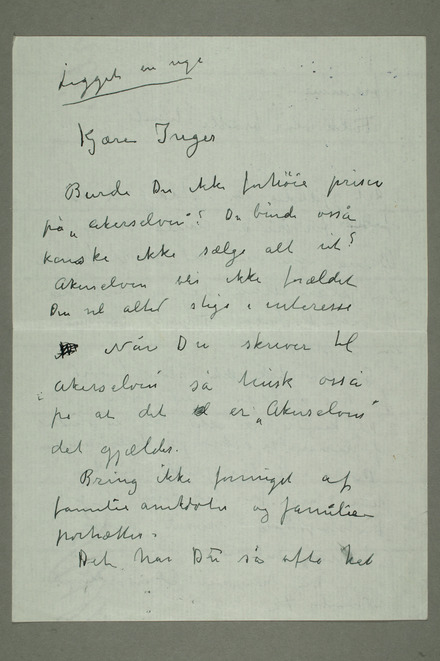 Ligget en uge
Kjære Inger
Burde Du ikke forhöie prisen
på „Akerselven"? Du burde også
kanske ikke sælge alt ut?
Akerselven blir ikke forældet
Den vil altid stige i interesse
Når Du skriver til
Akerselven så husk også
på at det er „Akerselven"
det gjælder.
Bring ikke formeget af
familieanekdoter og familie
portrætter.
Det har Du så ofte